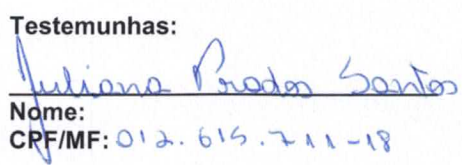 Testemunhas:
Juliana Prados Santos
Nome:
CPF/MF: 012.615.711-18